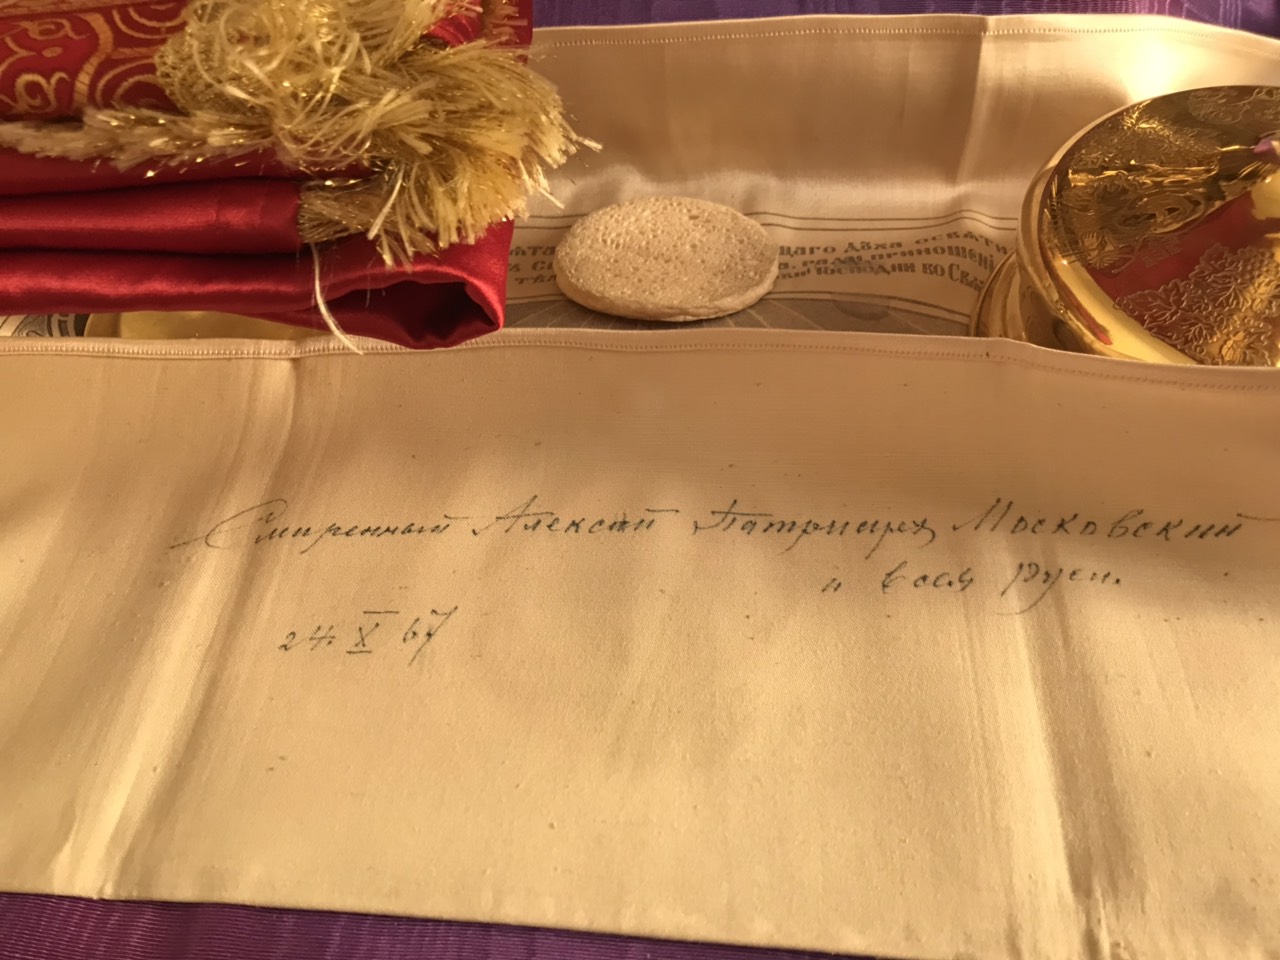 щаго дꙋха освѧти
ради приношенї
Господни во Свѧ
Смиренный Алексий Патриархъ Московский
и всея Руси.
24. X 67